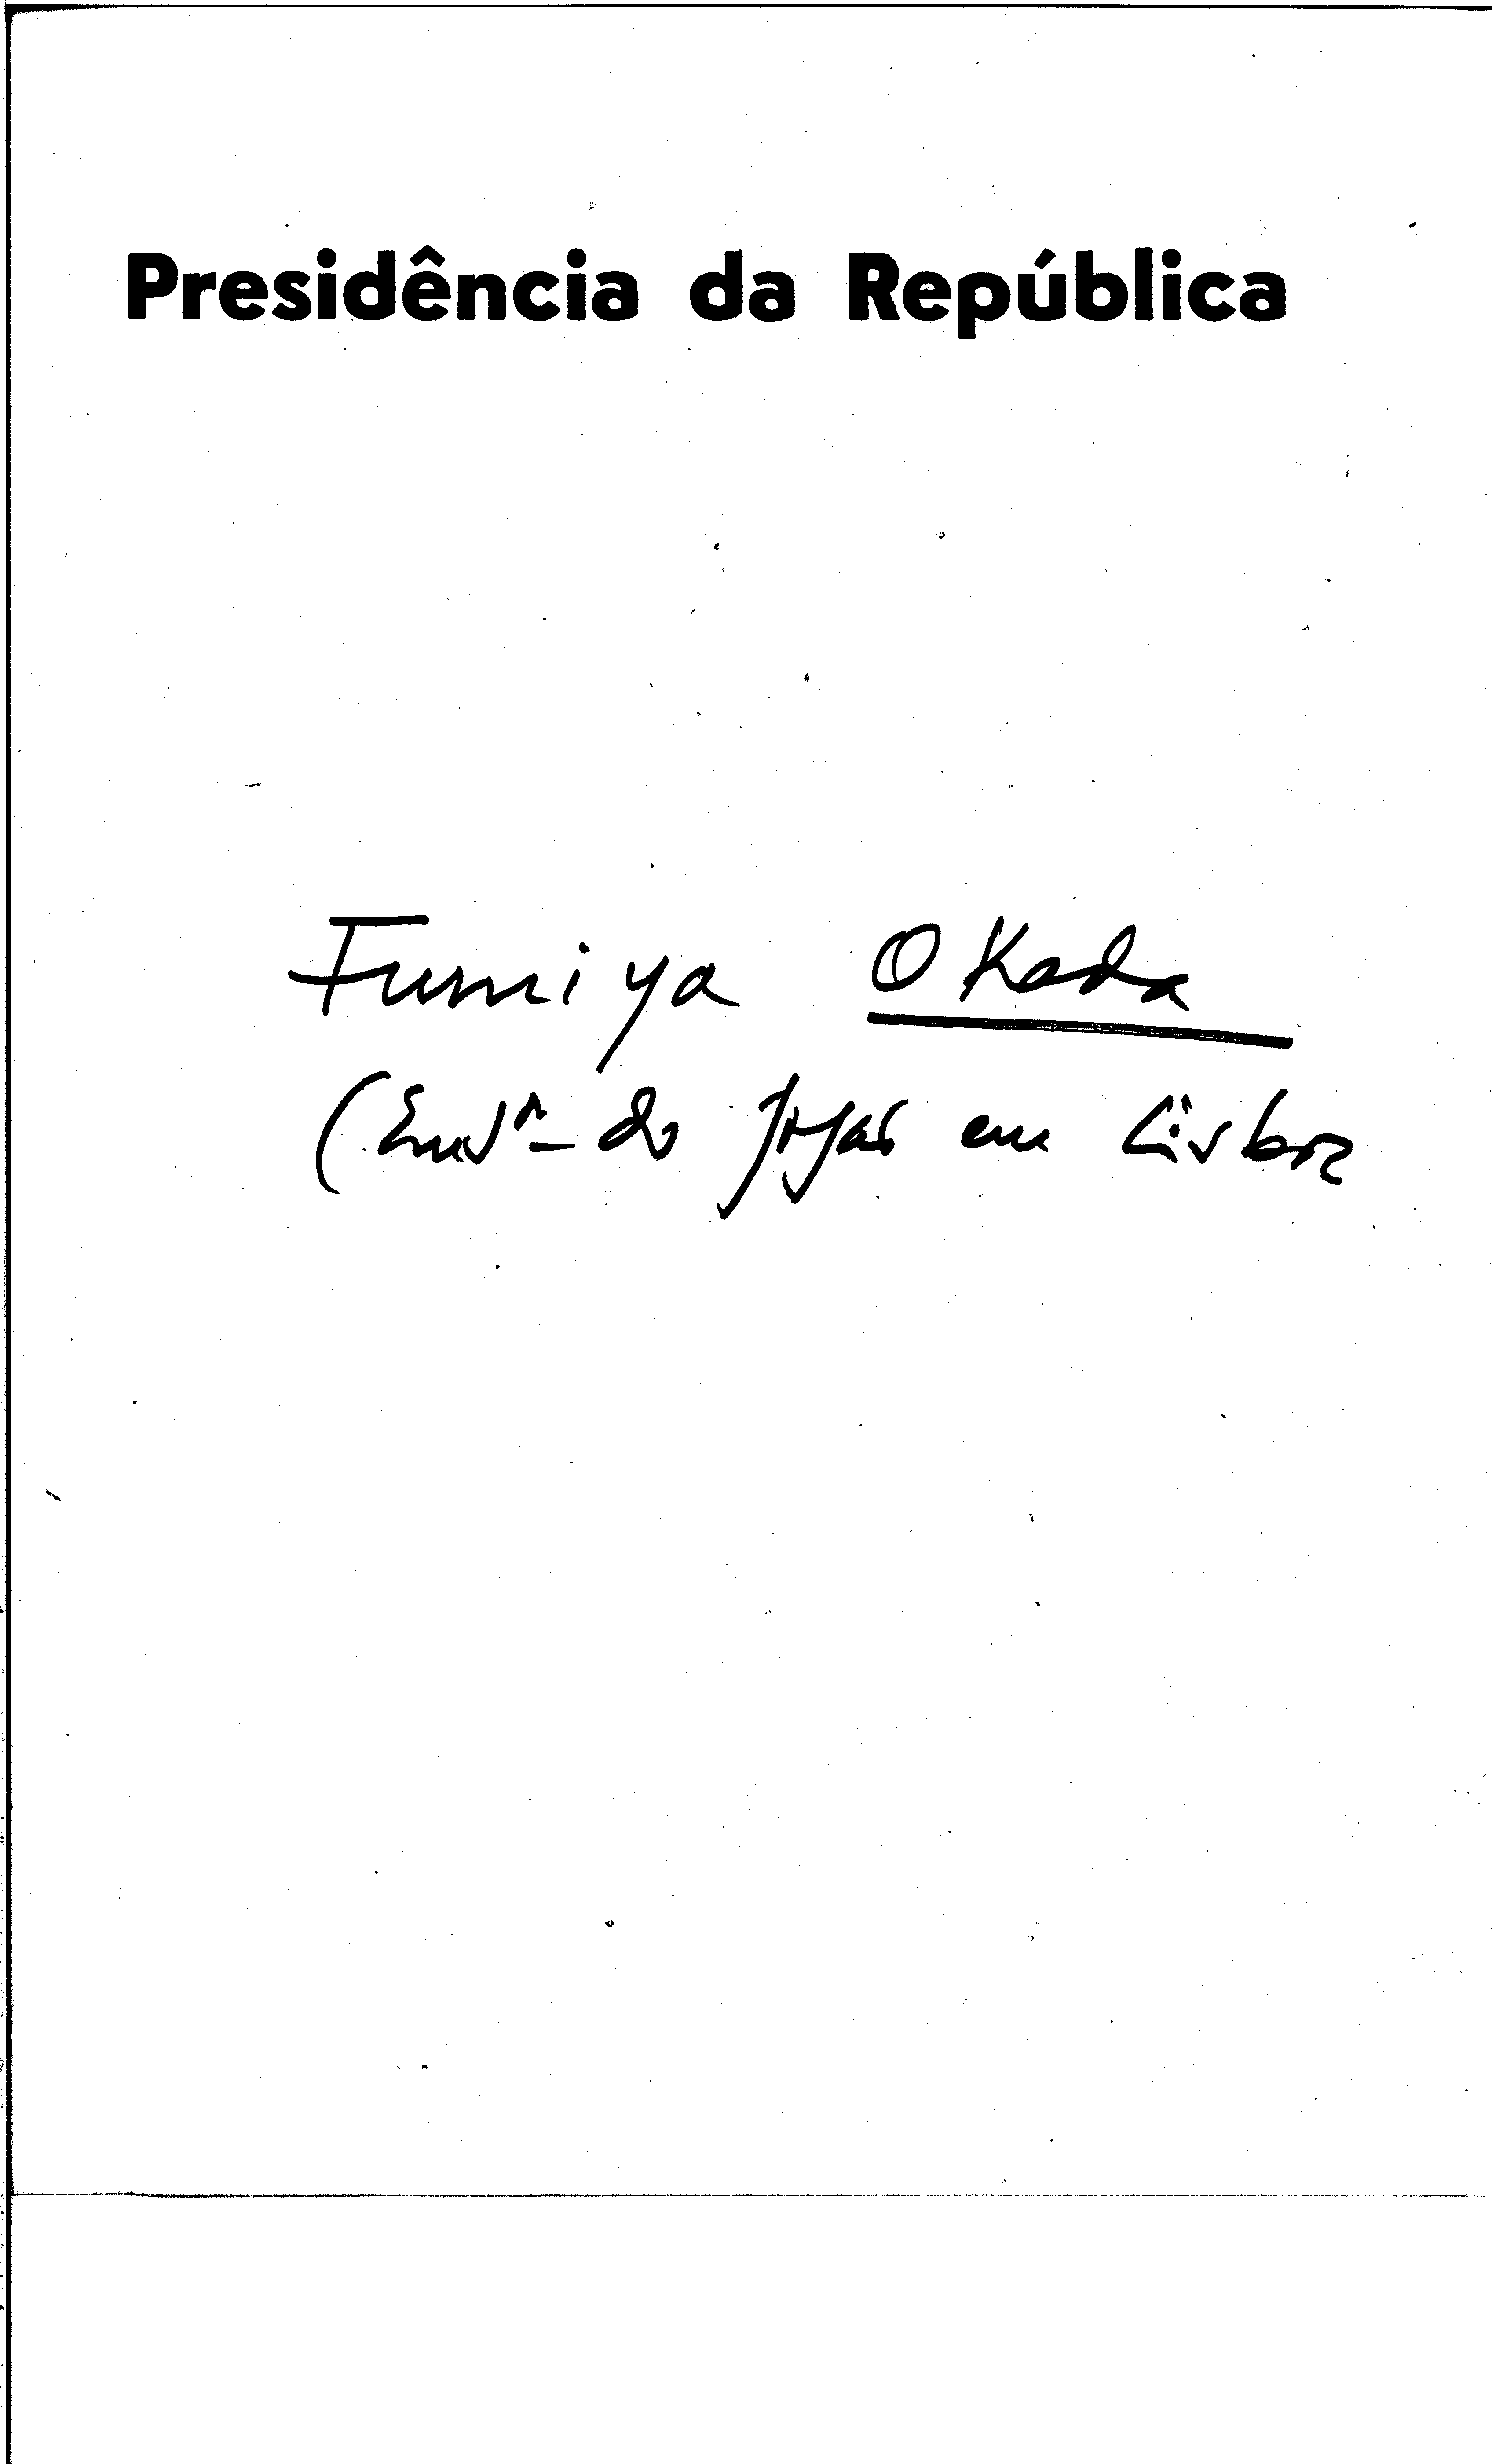 Presidência da República
Fumiya Okada
do Japão em Lisboa